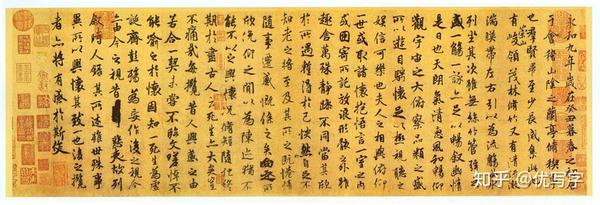 永和九年歲在癸丑暮春之初會
于會稽山陰之蘭亭脩稧事
也羣賢畢至少長咸集此地
有崇山峻領茂林脩竹又有清流激
湍暎帶左右引以為流觴曲水
列坐其次雖無絲竹管弦之
盛一觴一詠亦足以暢敘幽情
是日也天朗氣清惠風和暢仰
觀宇宙之大俯察品類之盛
所以遊目騁懷足以極視聽之
娛信可樂也夫人之相與俯仰
一世或取諸懷抱悟言一室之內
或因寄所託放浪形骸之外雖
趣舍萬殊靜躁不同當其欣
於所遇蹔得於己快然自足不
知老之將至及其所之既惓情
隨事遷感慨係之矣向之所
欣俛仰之閒以為陳迹猶不
能不以之興懷況脩短隨化終
期於盡古人云死生亦大矣豈
不痛哉每攬昔人興感之由
若合一契未嘗不臨文嗟悼不
能喻之於懷固知一死生為虛
誕齊彭殤為妄作後之視今
亦由今之視昔悲夫故列
敘時人錄其所述雖世殊事
異所以興懷其致一也後之攬
者亦將有感於斯文
知乎 @优写字